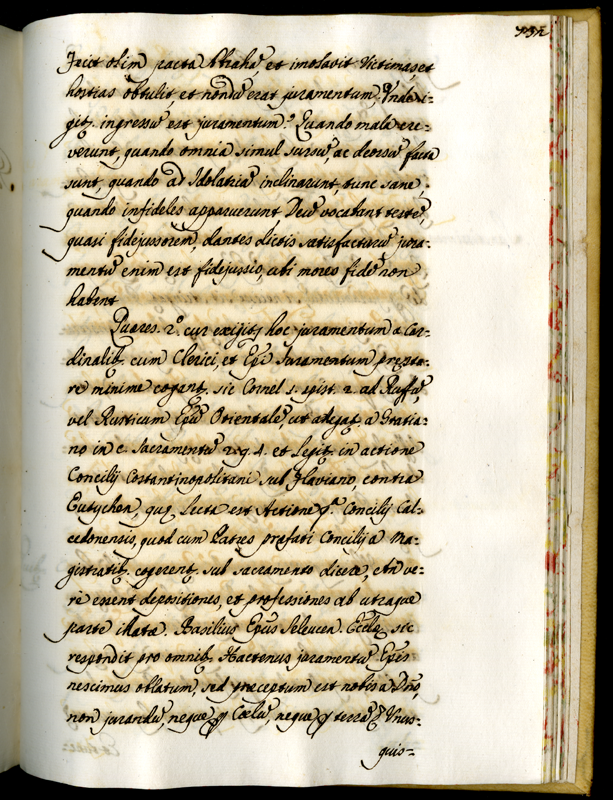 Fecit olim pacta Abrahã, et imolavit Victimas, et
hostias obtulit, et nondũ erat juramentum. Unde
giť. ingressũ est juramentum? Quando mala cre-
verunt, quando omnia simul sursũ, ac deorsũ facta
sunt, quando ad Idolatriã inclinarunt, tunc sane,
quando infideles apparuerunt, Deũ vocabant testẽ,
quasi fidejussorem, dantes dictis satisfacturũ jura-
mentũ enim est fidejussio, ubi mores fidẽ non
habent
Quares. 2.º cur exijiť hoc juramentum a Car-
dinalib. cum Clerici, et Epi Juramentum
re minime coganť. sic Cornel 1. epist. 2. ad Ruffũ,
vel Rusticum Epũ Orientalẽ, ut a Gratia-
no in c. Sacramentũ 2. q. 4. et Legiť in actione
Concilij Costantinopolitani sub Flaviano, contra
Eutychen, que Lecta est Actione p.ª Concilij Cal-
cedonensis, quod cum Patres prefati Concilij a Ma-
gistratib. cogerenť. sub sacramento dicere, An ve-
re essent depositiones, et professiones ab utraque
parte illatæ. Basilius Epus Seleucen. Eccľę sic
respondit pro omnib. Hactenus juramentũ Epis
nescimus oblatum, sed præceptum est nobis a Dño,
non jurandũ, neque p Cœlũ, neque p terrã Unus-
quis-